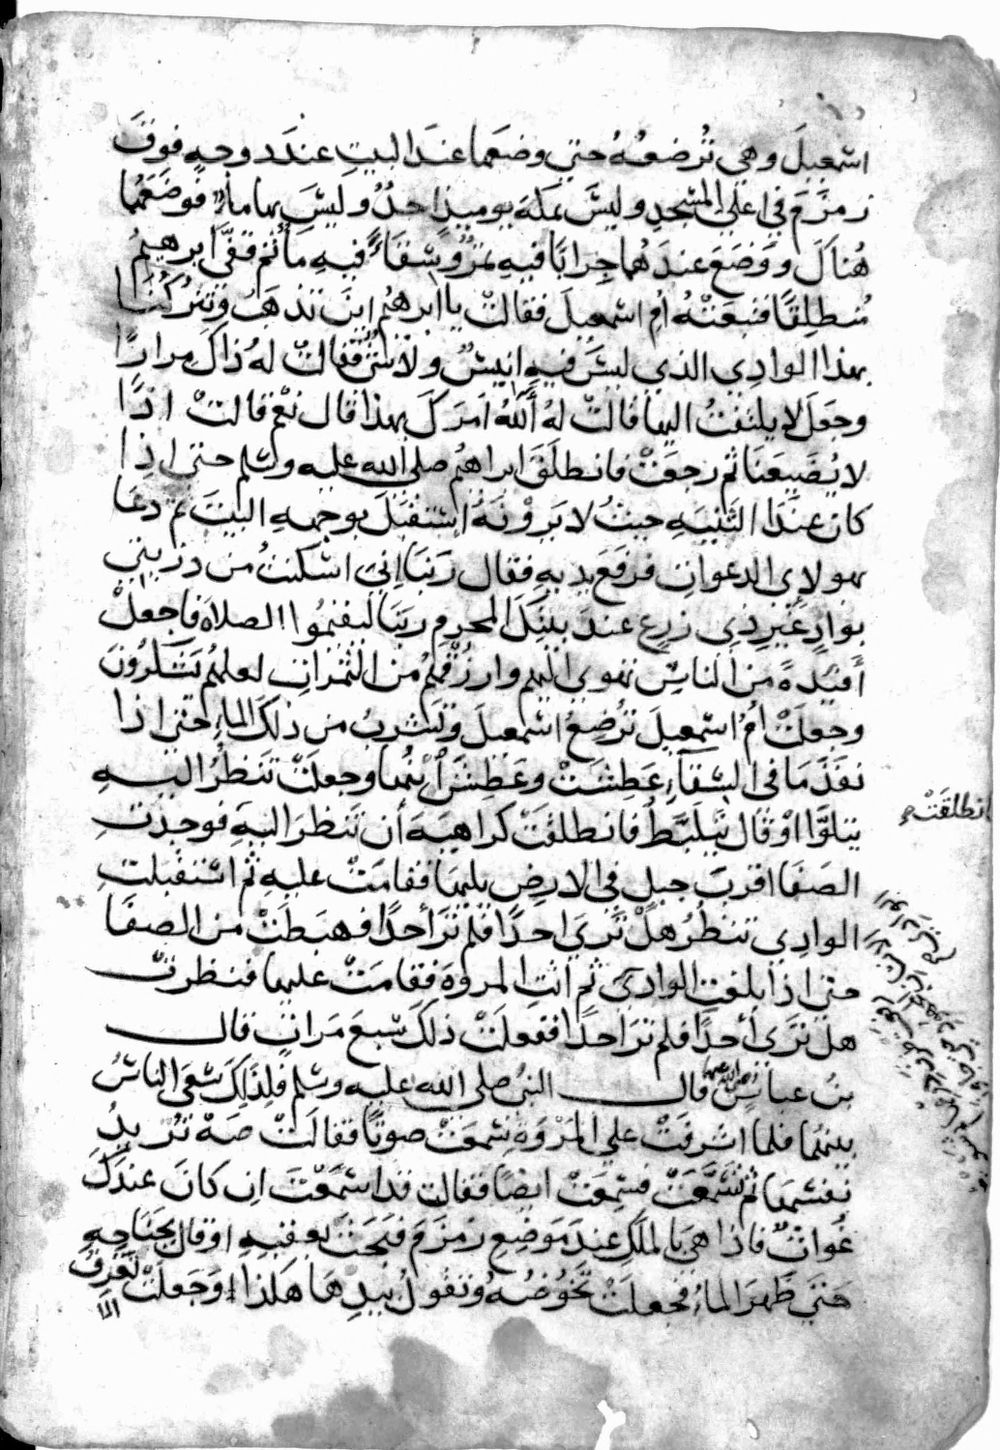 اسمعيل وهي تُرضعُهُ حتي وضعَها عندَ البيتِ عندَ دوحةٍ فوقَ
زمزَمَ في اعلي المسْجدِ وليسَ بمَكةَ يوميذٍ احدٌ وليسَ بها ماءٌ فوضَعَهُما
هُنالَك ووضَعَ عندَهُما جِرابًا فيهِ تمرٌ وسِقَاءً فيهِ ماءٌ ثم قفّي ابرهيمُ
مُنطلِقًا فتبعَتْهُ ام اسمعيلَ فقالت يا ابرهيمُ اينَ تذهَبُ وتترُكُنا
بهذا الوادِي الذي ليسَ فيهِ انيسٌ ولا شيٌ فقالت لهُ ذاكَ مِرارًا
وجعَلَ لا يلتفتُ اليها فقالت لهُ أللهُ امَرَكَ بهذا قال نعْم قالتْ اذًا
لا يُضَيعَنا ثم رجعَتْ فانطلَقَ ابراهيمُ صلى الله عليه وسلم حتى اذا
كان عندَ الثنيةِ حيثُ لا يَروْنَهُ استقبَلَ بوجههِ البيتَ ثم دعَا
بهولاءِ الدعواتِ فرفَعَ يديهِ فقال رَبَنا اِني اسْكنتُ من ذريتي
بوادٍ غَيرِ ذِي زرعٍ عندَ بيتِكَ المحرمِ ربَنا ليقيمُوا الصلاةَ فاجعلْ
أفئِدةً منَ الناسِ تهوي اليهم وارزُقْهُم منَ الثمراتِ لعلهُم يَشكرُونَ
وجعلَتْ امُ اسمعيلَ تُرضِعُ اسمعيلَ وتَشربُ من ذلكَ الماءِ حتى اذا
نفدَ مَا في السقاءِ عَطِشَتْ وعَطِشَ ابنُها وجعلَتْ تَنظرُ اليهِ
يتلوَّا اوْ قال يتَلبَّطُ فانطلقَتْ كراهيةَ أن تَنظرَ اليهِ فوجدَتِ
الصَفا اقربَ جبلٍ في الارضِ يليها فقامَتْ عليهِ ثم استقبلتِ
الوادِي تنظُرُ هلْ تَرَي احدًا فلم تَرَ أحدًا فهبَطَتْ منَ الصفَا
حتى اذا بلغتِ الوادِيَ ثم اتتِ المروةَ فقامَتْ عليها فنظرتْ
هل تَرَى أحدًا فلم تَرَ احدًا ففعلَتْ ذلكَ سبعَ مَراتٍ قال
بنُ عباسٍ رضي الله عنهما قال النبيُ صلى الله عليه وسلم فلِذلِكَ سَعَى الناسُ
بينَهُما فلما اشرفَتْ علي المَرْوَةِ سَمعَتْ صوتًا فقالَتْ صَهْ تُريدُ
نفسَها ثم تَسَمَّعَتْ فسمِعَتْ ايضًا فقالت قد اسْمَعْتَ اِن كانَ عندَكَ
غُواثٌ فاذا هي بالملَكِ عندَ مَوضِعِ زمزَمَ فبَحَثَ بعقِبهِ او قال بجَناحِهِ
حتى ظهَرَ الماءُ فجعلَتْ تُحَوّضُهُ وتقولُ بيدِهَا هاكذا وجَعلَتْ تَغرِفُ
انطلقَتْ